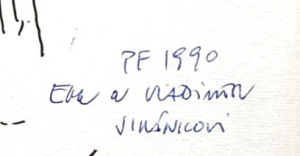 PF 1990
Eva a VLADIMÍR
JIRÁNKOVI